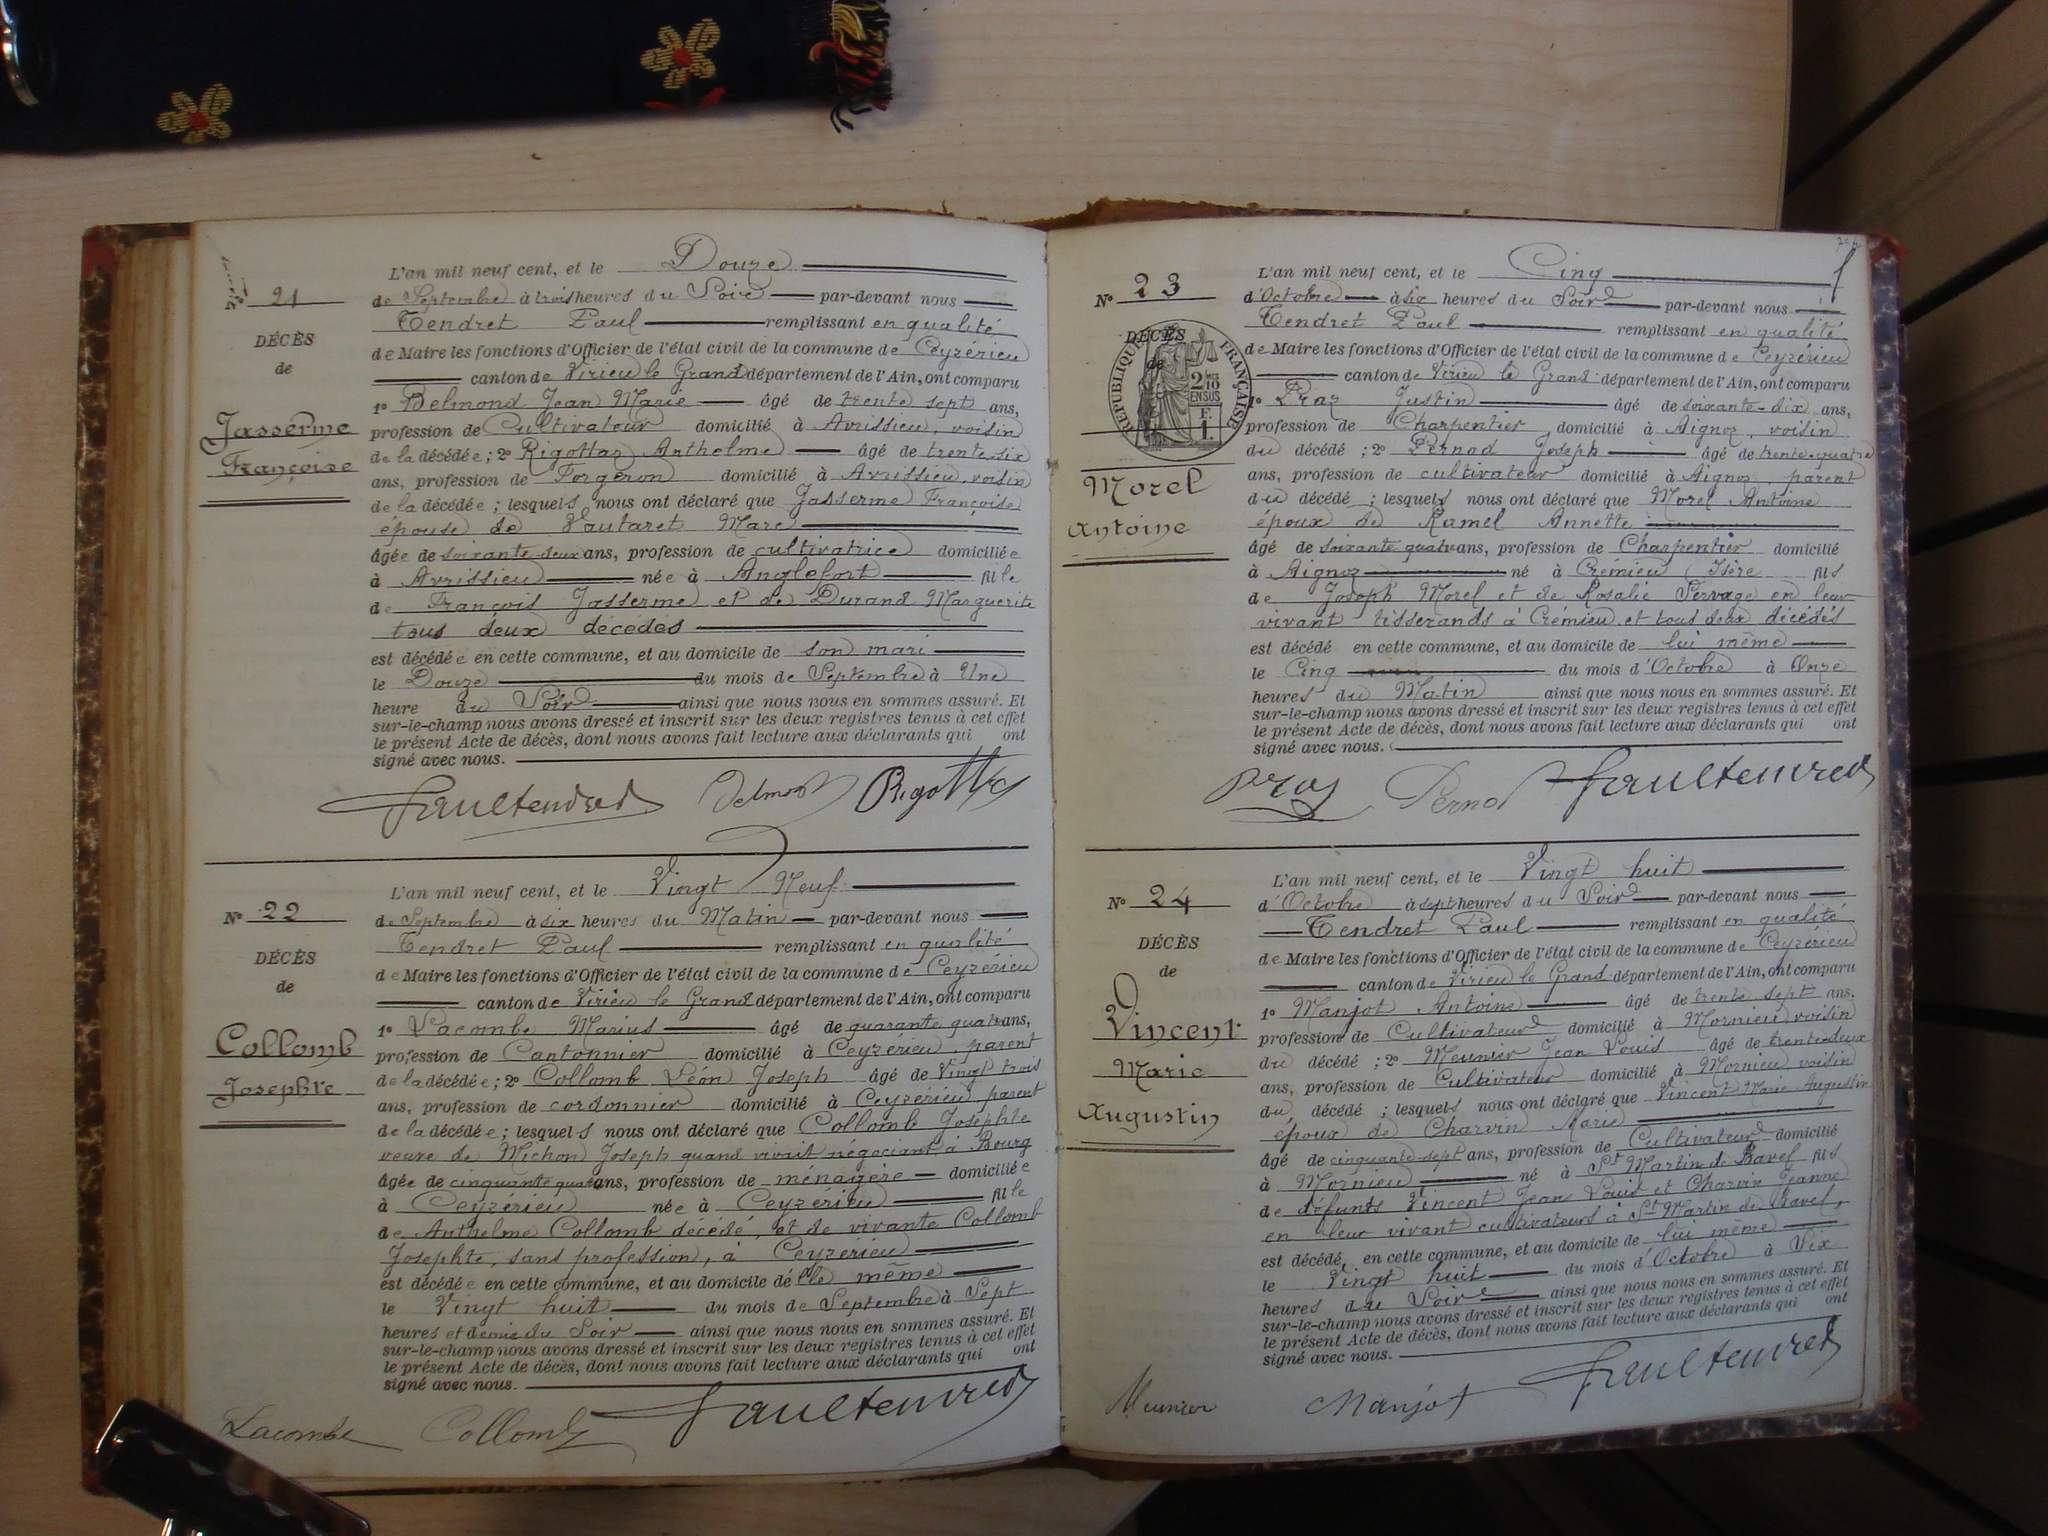 N° 21
DÉCÈS
de
Jasserme
Françoise
L'an mil neuf cent, et le Douze
de Septembre à trois heures du Soir par-devant nous
Tendret Paul remplissant en qualité
de Maire les fonctions d'Officier de l'état civil de la commune de Ceyzérieu
canton de Virieu le Grand département de l'Ain, ont comparu
1° Belmond Jean Marie âgé de trente sept ans,
profession de Cultivateur domicilié à Avrissieu, voisin
de la décédée ; 2° Rigottaz Anthelme âgé de trente-six
ans, profession de Forgeron domicilié à Avrissieu, voisin
de la décédée ; lesquels nous ont déclaré que Jasserme Françoise
épouse de Vautaret Marc
âgée de soixante-deux ans, profession de cultivatrice domiciliée
à Avrissieu née à Anglefort fille
de François Jasserme et de Durand Marguerite
tous deux décédés
est décédée en cette commune, et au domicile de son mari
le Douze du mois de Septembre à Une
heure du Soir ainsi que nous nous en sommes assuré. Et
sur-le-champ nous avons dressé et inscrit sur les deux registres tenus à cet effet
le présent Acte de décès, dont nous avons fait lecture aux déclarants qui ont
signé avec nous.
Paul Tendret Delmont Rigottaz
N° 22
DÉCÈS
de
Collomb
Josephte
L'an mil neuf cent, et le Vingt Neuf
de Septembre à six heures du Matin par-devant nous
Tendret Paul remplissant en qualité
de Maire les fonctions d'Officier de l'état civil de la commune de Ceyzérieu
canton de Virieu le Grand département de l'Ain, ont comparu
1° Lacombe Marius âgé de quarante quatre ans,
profession de Cantonnier domicilié à Ceyzérieu, parent
de la décédée ; 2° Collomb Léon Joseph âgé de Vingt trois
ans, profession de cordonnier domicilié à Ceyzérieu parent
de la décédée ; lesquels nous ont déclaré que Collomb Josephte
veuve de Michon Joseph quand vivait négociant à Bourg
âgée de cinquante quatre ans, profession de ménagère domiciliée
à Ceyzérieu née à Ceyzérieu fille
de Anthelme Collomb décédé, et de vivante Collomb
Josephte, sans profession, à Ceyzérieu
est décédée en cette commune, et au domicile d'elle même
le Vingt huit du mois de Septembre à Sept
heures et demie du Soir ainsi que nous nous en sommes assuré. Et
sur-le-champ nous avons dressé et inscrit sur les deux registres tenus à cet effet
le présent Acte de décès, dont nous avons fait lecture aux déclarants qui ont
signé avec nous.
Lacombe Collomb Paul Tendret
N° 23
DÉCÈS
de
RÉPUBLIQUE FRANÇAISE
2/10 EN SUS
Morel
Antoine
L'an mil neuf cent, et le Cinq
d'Octobre à six heures du Soir par-devant nous
Tendret Paul remplissant en qualité
de Maire les fonctions d'Officier de l'état civil de la commune de Ceyzérieu
canton de Virieu le Grand département de l'Ain, ont comparu
1° Praz Justin âgé de soixante-dix ans,
profession de Charpentier domicilié à Aignoz, voisin
du décédé ; 2° Pernod Joseph âgé de trente-quatre
ans, profession de cultivateur domicilié à Aignoz, parent
du décédé ; lesquels nous ont déclaré que Morel Antoine
époux de Ramel Annette
âgé de soixante quatre ans, profession de Charpentier domicilié
à Aignoz né à Crémieu (Isère fils
de Joseph Morel et de Rosalie Servage en leur
vivant tisserands à Crémieu et tous deux décédés
est décédé en cette commune, et au domicile de lui même
le Cinq du mois d'Octobre à Onze
heures du Matin ainsi que nous nous en sommes assuré. Et
sur-le-champ nous avons dressé et inscrit sur les deux registres tenus à cet effet
le présent Acte de décès, dont nous avons fait lecture aux déclarants qui ont
signé avec nous.
Praz Pernod Paul Tendret
N° 24
DÉCÈS
de
Vincent
Marie
Augustin
L'an mil neuf cent, et le Vingt huit
d'Octobre à sept heures du Soir par-devant nous
Tendret Paul remplissant en qualité
de Maire les fonctions d'Officier de l'état civil de la commune de Ceyzérieu
canton de Virieu le Grand département de l'Ain, ont comparu
1° Manjot Antoine âgé de trente sept ans.
profession de Cultivateur domicilié à Mornieu, voisin
du décédé ; 2° Meunier Jean Louis âgé de trente-deux
ans, profession de Cultivateur domicilié à Mornieu voisin
du décédé ; lesquels nous ont déclaré que Vincent Marie Augustin
époux de Charvin Marie
âgé de cinquante-sept ans, profession de Cultivateur domicilié
à Mornieu né à St Martin de Bavel fils
de défunts Vincent Jean Louis et Charvin Jeanne
en leur vivant cultivateurs à St Martin de Bavel,
est décédé en cette commune, et au domicile de lui même
le Vingt huit du mois d'Octobre à Six
heures du Soir ainsi que nous nous en sommes assuré. Et
sur-le-champ nous avons dressé et inscrit sur les deux registres tenus à cet effet
le présent Acte de décès, dont nous avons fait lecture aux déclarants qui ont
signé avec nous.
Meunier Manjot Paul Tendret